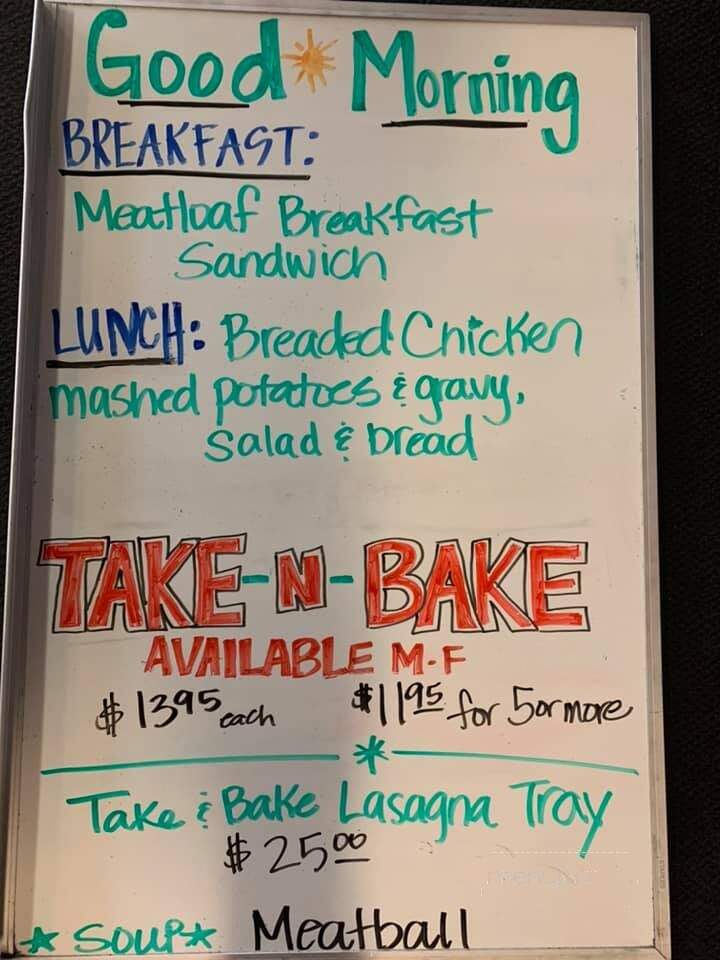 Good Morning
BREAKFAST:
Meatloaf Breakfast
Sandwich
LUNCH: Breaded Chicken
mashed potatoes & gravy,
Salad & bread
TAKE-N-BAKE
AVAILABLE M-F
$13 95 each $11 95 for 5 or more
Take & Bake Lasagna Tray
$25 00
SOUP Meatball